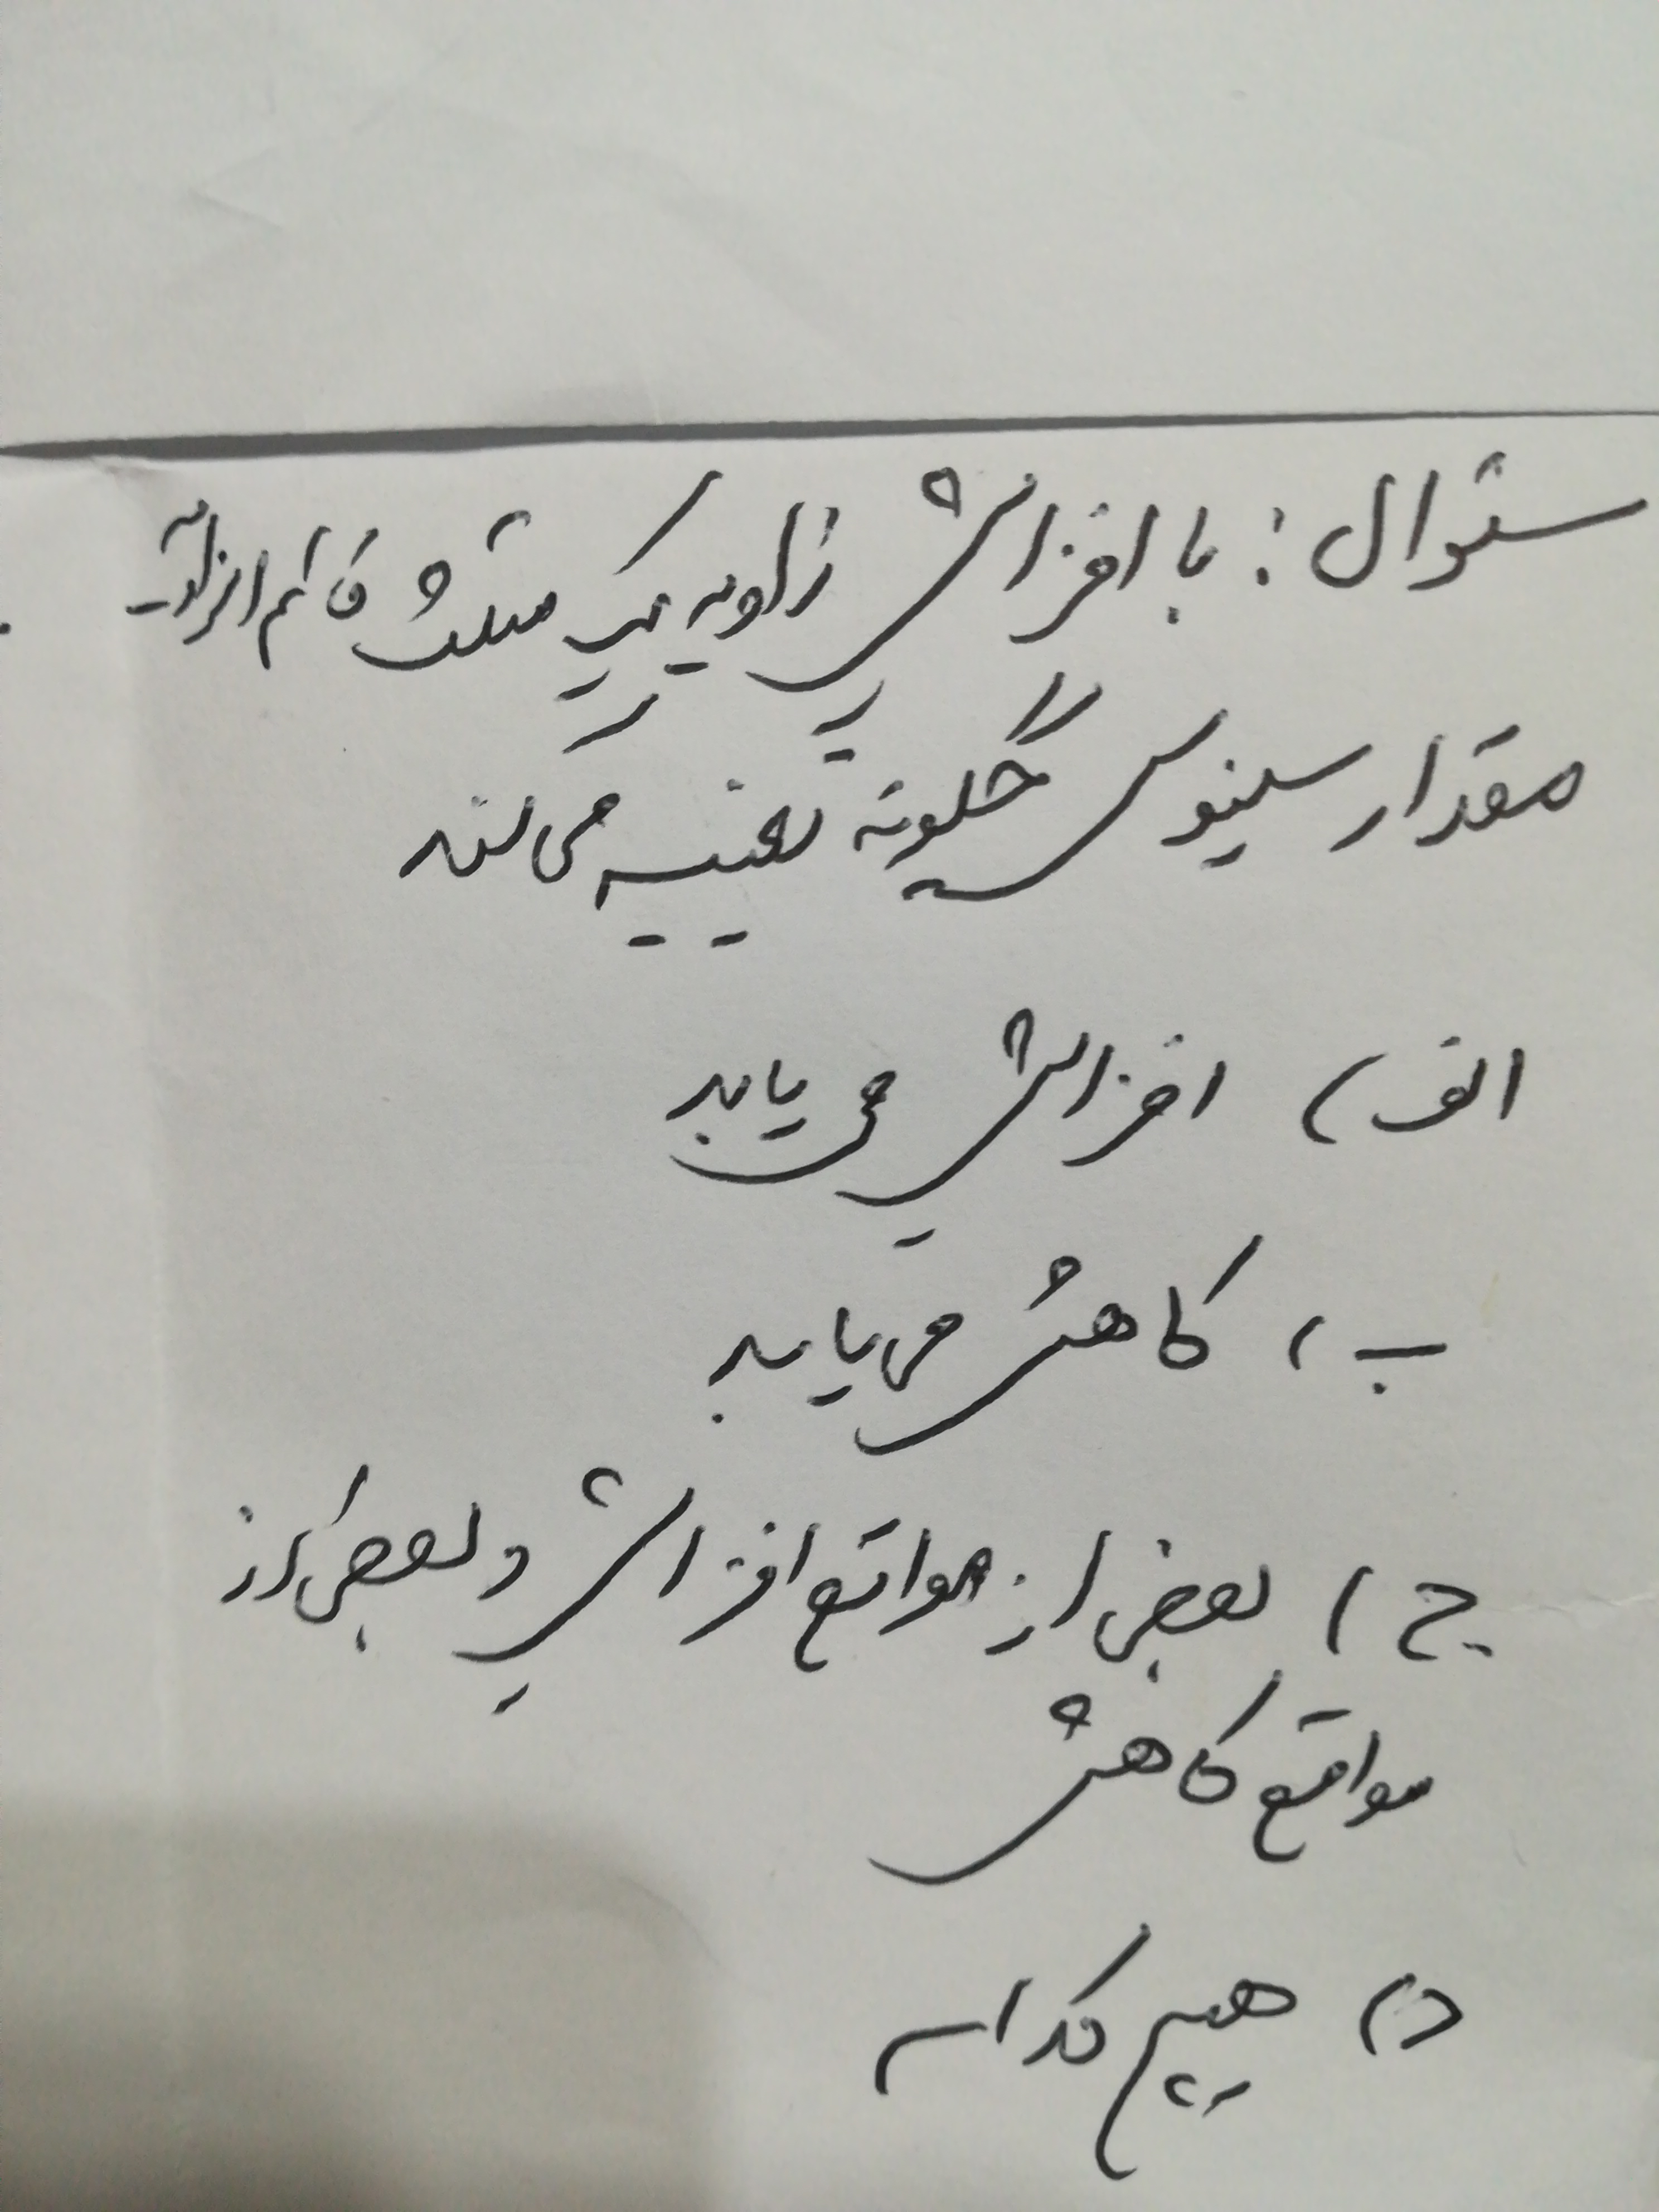 سئوال: با افزایش زاویه یک مثلث قائم الزاویه
مقدار سینوس چگونه تغییر می کند
الف) افزایش می یابد
ب) کاهش می یابد
ج) بعضی از مواقع افزایش و بعضی از
مواقع کاهش
د) هیچ کدام